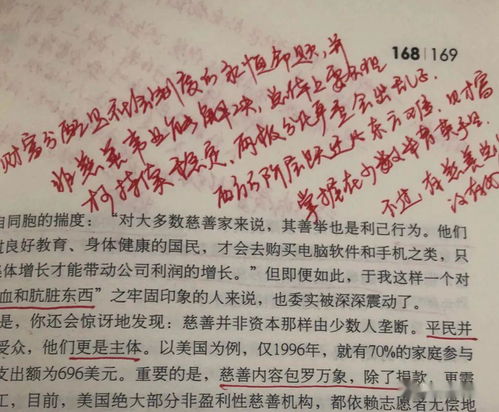 168 | 169
财富分配是社会制度的永恒命题,并
非慈善事业能解决,总体上要求相
对持续稳定,两极分化严重会出乱子。
西方的阶层跃迁比东方可信,且财富
掌握在少数父辈有家手中
不过,有慈善总
没有好
自同胞的揣度:“对大多数慈善家来说,其善举也是利己行为。他们
过良好教育、身体健康的国民,才会去购买电脑软件和手机之类,只
体增长才能带动公司利润的增长。”但即便如此,于我这样一个对
血和肮脏东西”之牢固印象的人来说,也委实被深深震动了。
是,你还会惊讶地发现:慈善并非资本那样由少数人垄断。平民并
受众,他们更是主体。以美国为例,仅1996年,就有70%的家庭参与
支出额为696美元。重要的是,慈善内容包罗万象,除了捐款,更需
工,目前,美国绝大部分非盈利性慈善机构,都依赖志愿者无偿地